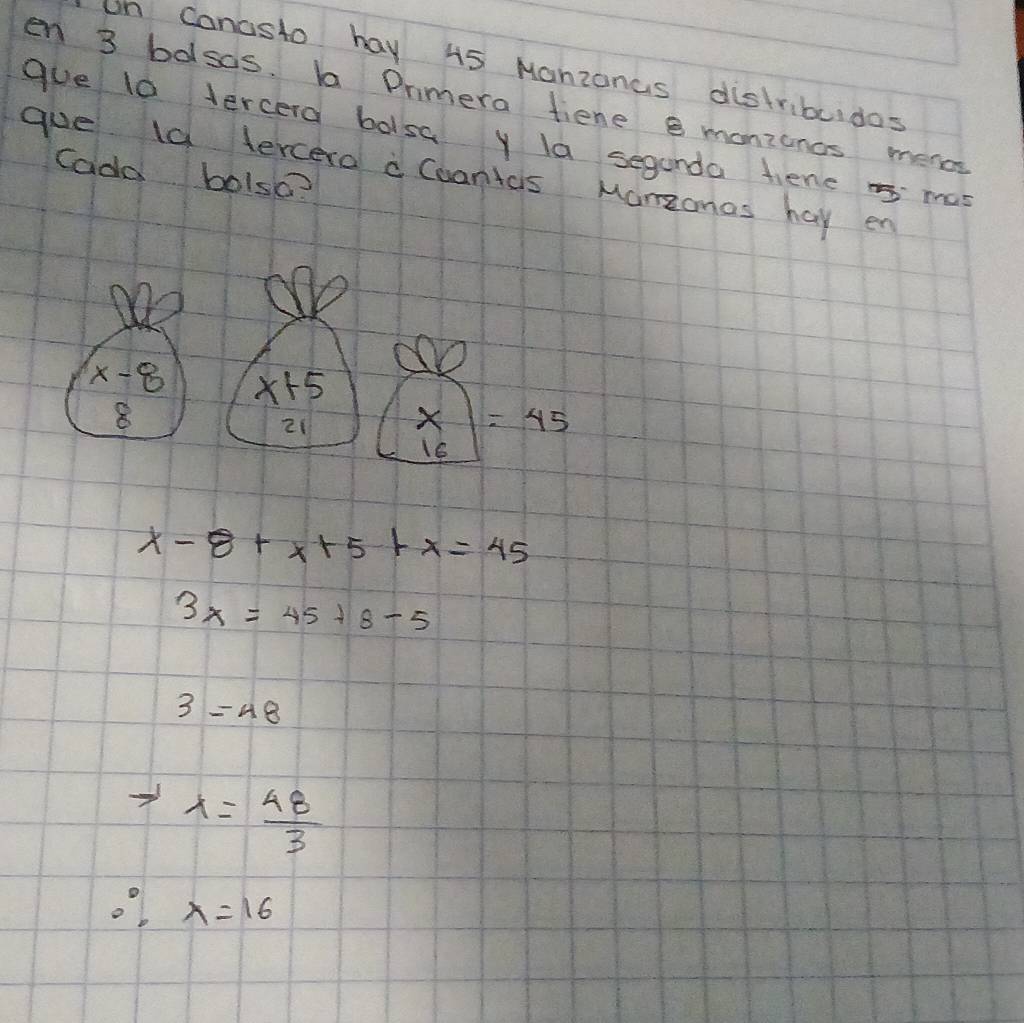 un canasto hay 45 Manzanas distribuidas
en 3 bolsas. la Primera tiene 8 manzanas menos
que la tercera bolsa y la segunda tiene 5 mas
que la tercera ¿Cuantas Manzanas hay en
cada bolsa?
x-8 x+5 x = 45
8 21 16
x-8+x+5+x=45
3x = 45+8-5
3=48
→ x= 48
3
∴ x=16